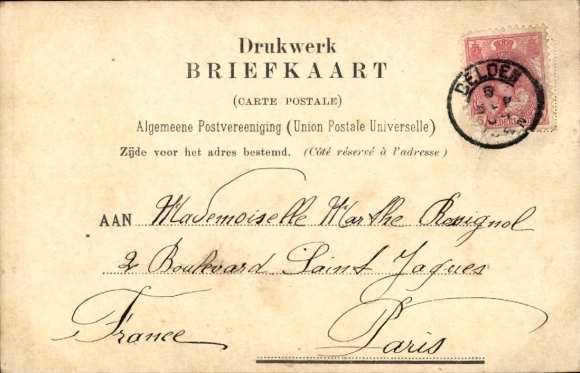 Drukwerk
BRIEFKAART
(CARTE POSTALE)
Algemeene Postvereeniging (Union Postale Universelle)
Zijde voor het adres bestemd. (Côté réservé à l'adresse)
DELDEN
AAN Mademoiselle Marthe Rossignol
2 Boulevard Saint Jaques
France Paris